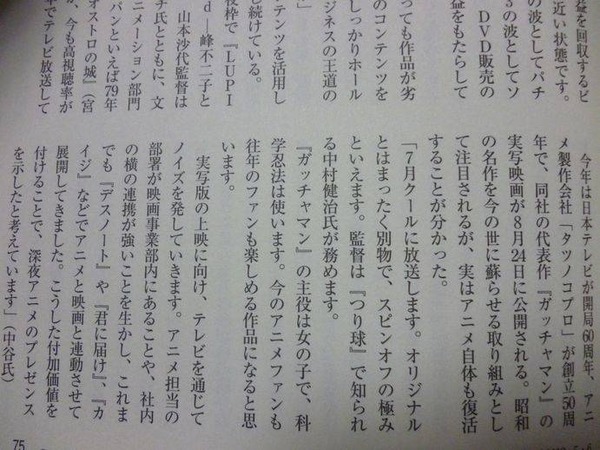 益を回収するビ
近い状態です。
の波としてパチ
3の波としてソ
DVD販売の
益をもたらして
っても作品が劣
のコンテンツを
しっかりホール
ジネスの王道の
」
ンテンツを活用し
し続けている。
枠で『LUPI
d―峰不二子と
山本沙代監督は
チ氏とともに、文
ニメーション部門
パンといえば79年
オストロの城』(宮
が、今も高視聴率が
でテレビ放送して
今年は日本テレビが開局60周年、アニ
メ製作会社「タツノコプロ」が創立50周
年で、同社の代表作『ガッチャマン』の
実写映画が8月24日に公開される。昭和
の名作を今の世に蘇らせる取り組みとし
て注目されるが、実はアニメ自体も復活
することが分かった。
「7月クールに放送します。オリジナル
とはまったく別物で、スピンオフの極み
といえます。監督は『つり球』で知られ
る中村健治氏が務めます。
『ガッチャマン』の主役は女の子で、科
学忍法は使います。今のアニメファンも
往年のファンも楽しめる作品になると思
います。
実写版の上映に向け、テレビを通じて
ノイズを発していきます。アニメ担当の
部署が映画事業部内にあることや、社内
の横の連携が強いことを生かし、これま
でも『デスノート』や『君に届け』、『カ
イジ』などでアニメと映画と連動させて
展開してきました。こうした付加価値を
付けることで、深夜アニメのプレゼンス
を示したと考えています」(中谷氏)
75